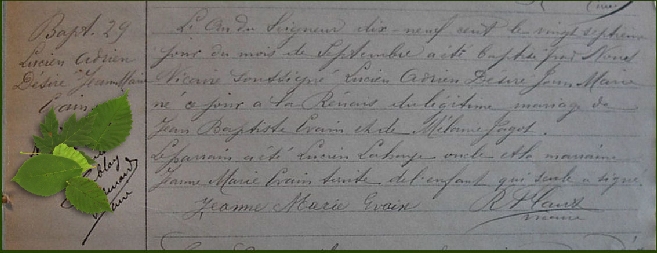 Bapt. 29
Lucien Adrien
Désiré Jean Marie
L'An du Seigneur dix-neuf cent le vingt septième
jour du mois de Septembre a été baptisé par Nous
Vicaire Soussigné Lucien Adrien Désiré Jean Marie
né ce jour à la du légitime mariage de
Jean Baptiste Evain et de Mélanie Jagot.
Le parrain a été Lucien oncle et la marraine
Jeanne Marie Evain tante de l'enfant qui seule a signé.
Jeanne Marie Evain
vicaire